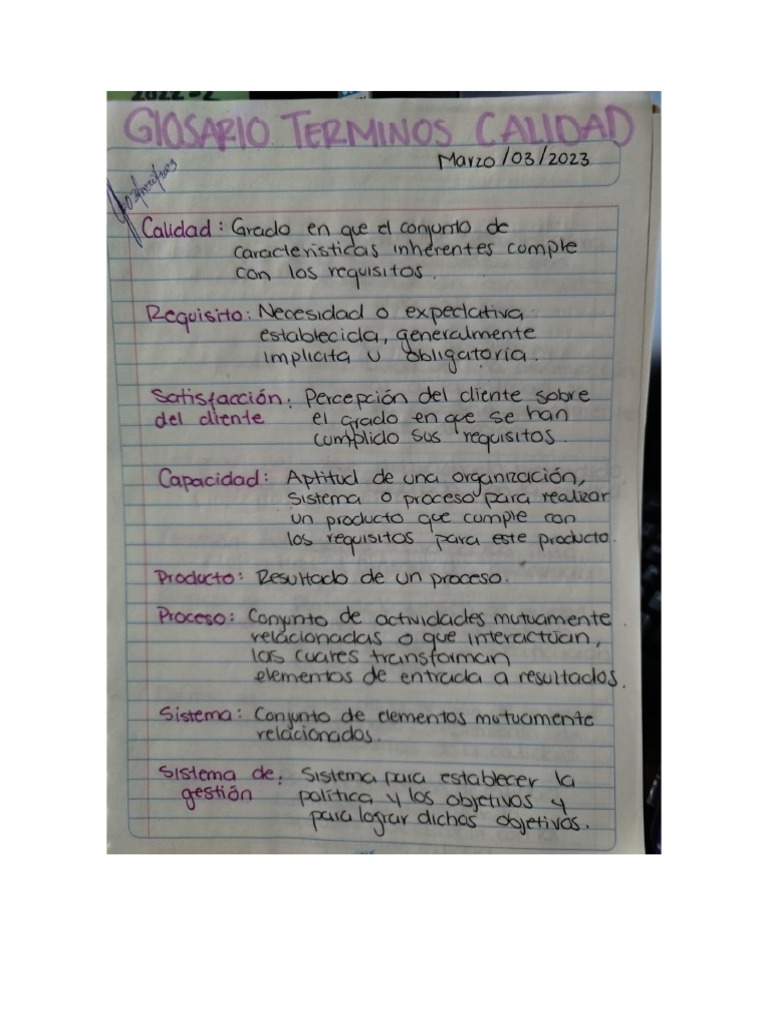 2022-2
GLOSARIO TERMINOS CALIDAD
Marzo/03/2023
Calidad: Grado en que el conjunto de
caracteristicas inherentes cumple
con los requisitos.
Requisito: Necesidad o expectativa
establecida, generalmente
implicita u obligatoria.
Satisfacción: Percepción del cliente sobre
del cliente el grado en que se han
cumplido sus requisitos.
Capacidad: Aptitud de una organización,
sistema o proceso para realizar
un producto que cumple con
los requisitos para este producto.
Producto: Resultado de un proceso.
Proceso: Conjunto de actividades mutuamente
relacionadas o que interactúan,
las cuares transforman
elementos de entrada a resultados.
Sistema: Conjunto de elementos mutuamente
relacionados.
Sistema de: Sistema para establecer la
gestión política y los objetivos y
para lograr dichos objetivos.